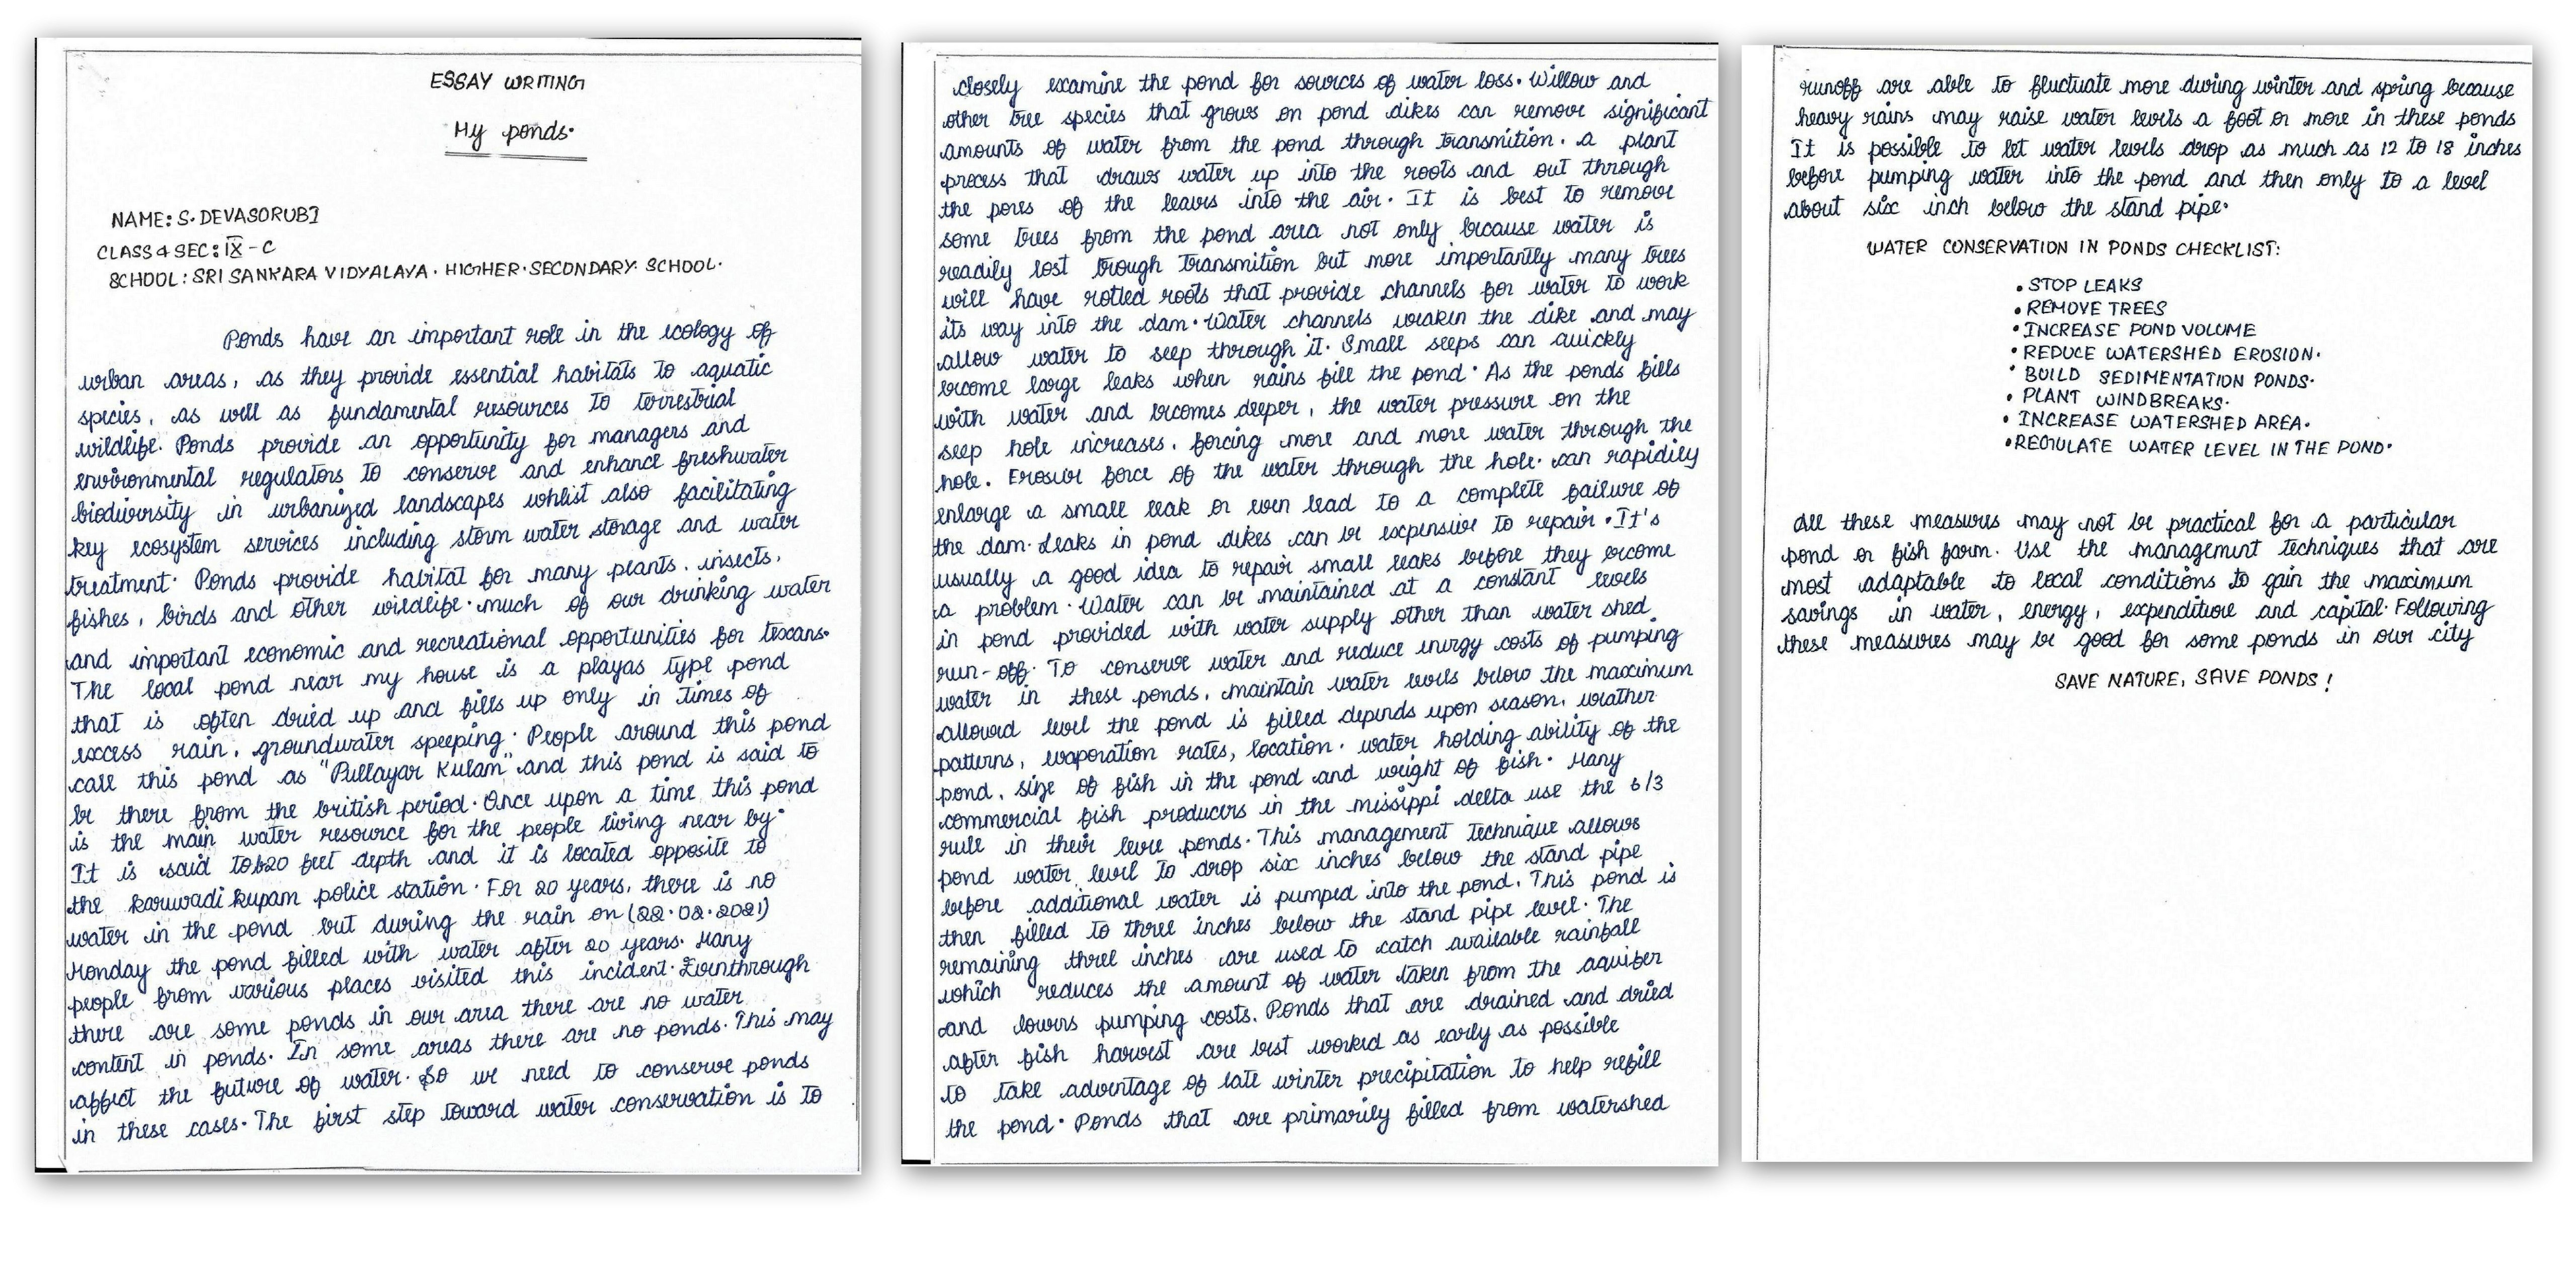 ESSAY WRITING
My ponds.
NAME: S. DEVASORUBI
CLASS & SEC: IX - C
SCHOOL: SRI SANKARA VIDYALAYA. HIGHER. SECONDARY. SCHOOL.
Ponds have an important role in the ecology of
urban areas, as they provide essential habitats to aquatic
species, as well as fundamental resources to terrestrial
wildlife. Ponds provide an opportunity for managers and
environmental regulators to conserve and enhance freshwater
biodiversity in urbanized landscapes whilst also facilitating
key ecosystem services including storm water storage and water
treatment. Ponds provide habitat for many plants, insects,
fishes, birds and other wildlife. much of our drinking water
and important economic and recreational opportunities for texans.
The local pond near my house is a playas type pond
that is often dried up and fills up only in times of
excess rain, groundwater speeping. People around this pond
call this pond as "Pullayar Kulam" and this pond is said to
be there from the british period. Once upon a time this pond
is the main water resource for the people living near by.
It is said to be 20 feet depth and it is located opposite to
the karuvadi kupam police station. For 20 years, there is no
water in the pond but during the rain on (22.02.2021)
Monday the pond filled with water after 20 years. Many
people from various places visited this incident. Eventhrough
there are some ponds in our area there are no water
content in ponds. In some areas there are no ponds. This may
affect the future of water. So we need to conserve ponds
in these cases. The first step toward water conservation is to
closely examine the pond for sources of water loss. Willow and
other tree species that grows on pond dikes can remove significant
amounts of water from the pond through transmition. a plant
process that draws water up into the roots and out through
the pores of the leaves into the air. It is best to remove
some trees from the pond area not only because water is
readily lost trough transmition but more importantly many trees
will have rotted roots that provide channels for water to work
its way into the dam. Water channels weaken the dike and may
allow water to seep through it. Small seeps can quickly
become large leaks when rains fill the pond. As the ponds fills
with water and becomes deeper, the water pressure on the
seep hole increases, forcing more and more water through the
hole. Erosive force of the water through the hole. can rapidily
enlarge a small leak or even lead to a complete failure of
the dam. Leaks in pond dikes can be expensive to repair. It's
usually a good idea to repair small leaks before they become
a problem. Water can be maintained at a constant levels
in pond provided with water supply other than water shed
run-off. To conserve water and reduce energy costs of pumping
water in these ponds, maintain water levels below the maximum
allowed level the pond is filled depends upon season, weather
patterns, evaporation rates, location. water holding ability of the
pond, size of fish in the pond and weight of fish. Many
commercial fish producers in the missippi delta use the 6/3
rule in their leve ponds. This management technique allows
pond water level to drop six inches below the stand pipe
before additional water is pumped into the pond. This pond is
then filled to three inches below the stand pipe level. The
remaining three inches are used to catch available rainfall
which reduces the amount of water taken from the aquifer
and lowers pumping costs. Ponds that are drained and dried
after fish harvest are best worked as early as possible
to take advantage of late winter precipitation to help refill
the pond. Ponds that are primarily filled from watershed
runoff are able to fluctuate more during winter and spring because
heavy rains may raise water levels a foot or more in these ponds
It is possible to let water levels drop as much as 12 to 18 inches
before pumping water into the pond and then only to a level
about six inch below the stand pipe.
WATER CONSERVATION IN PONDS CHECKLIST:
• STOP LEAKS
• REMOVE TREES
• INCREASE POND VOLUME
• REDUCE WATERSHED EROSION.
• BUILD SEDIMENTATION PONDS.
• PLANT WINDBREAKS.
• INCREASE WATERSHED AREA.
• REGULATE WATER LEVEL IN THE POND.
All these measures may not be practical for a particular
pond or fish farm. Use the management techniques that are
most adaptable to local conditions to gain the maximum
savings in water, energy, expenditiore and capital. Following
these measures may be good for some ponds in our city
SAVE NATURE, SAVE PONDS!